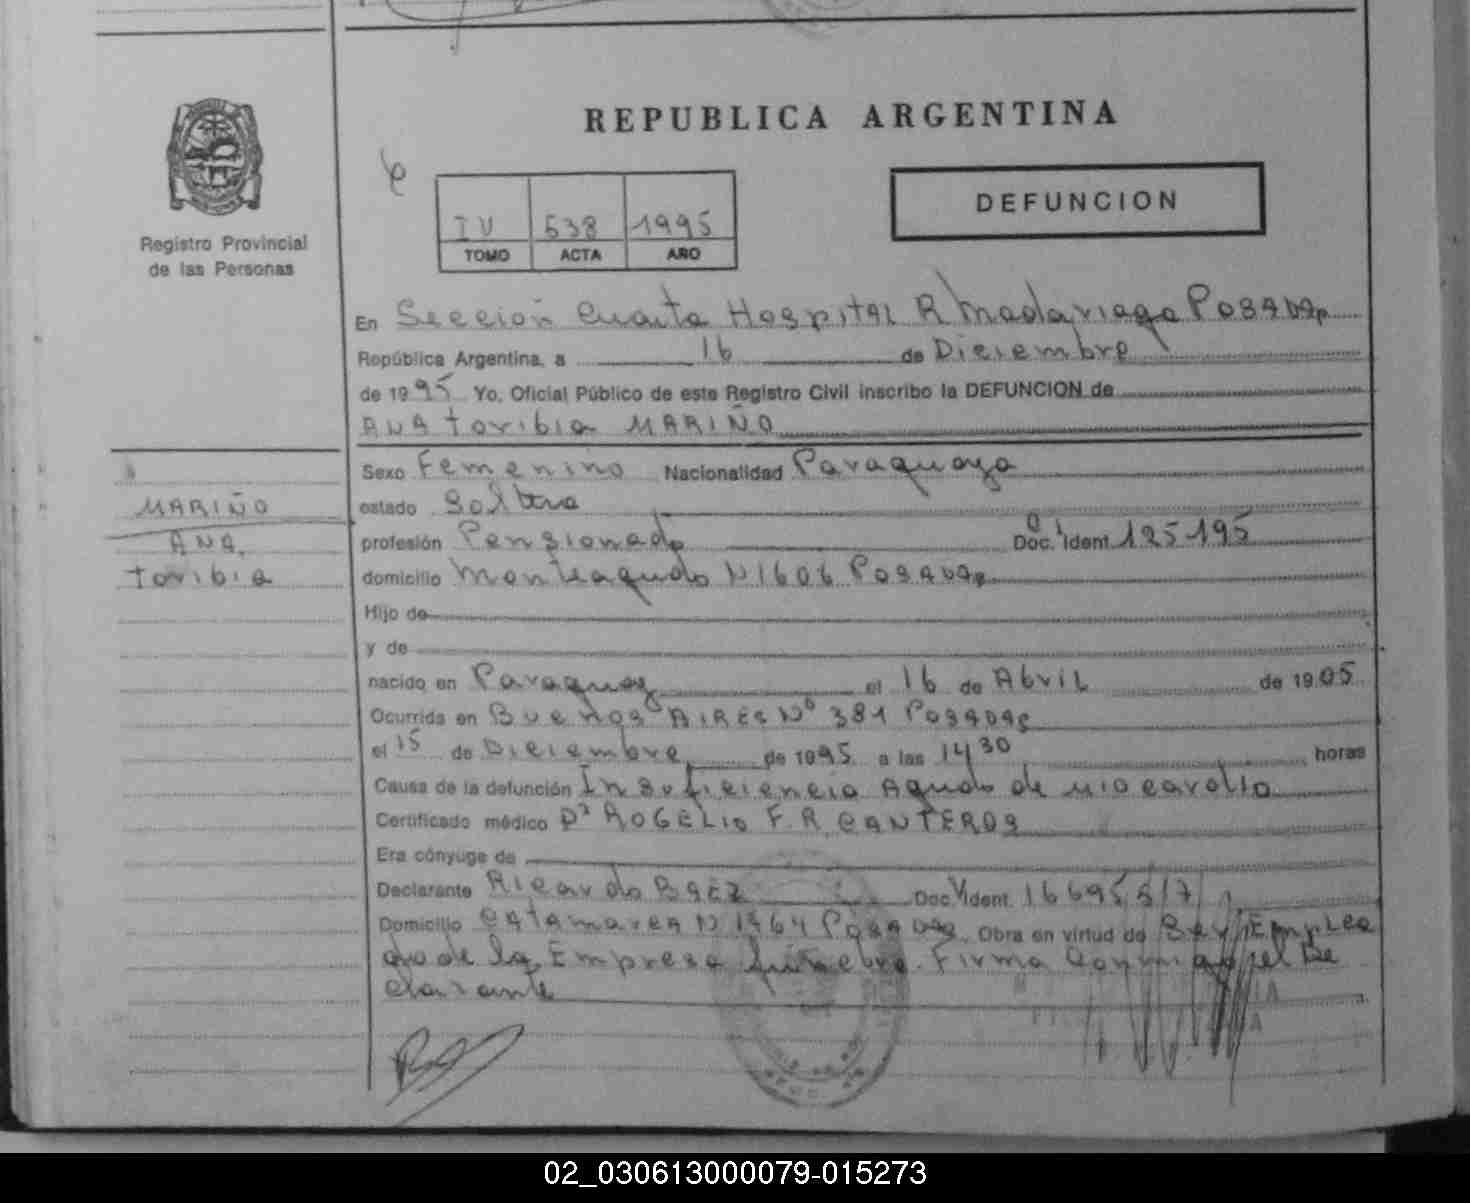 REPUBLICA ARGENTINA
DEFUNCION
IV 538 1995
TOMO ACTA AÑO
Registro Provincial
de las Personas
En Sección Cuarta Hospital R Madariaga Posadas
República Argentina, a 16 de Diciembre
de 1995 Yo, Oficial Público de este Registro Civil inscribo la DEFUNCION de
ANA Toribia MARIÑO
MARIÑO
ANA
Toribia
Sexo Femenino Nacionalidad Paraguaya
estado Soltera
profesión Pensionado Doc. Ident. 125195
domicilio Monteagudo N 1606 Posadas
Hijo de
y de
nacido en Paraguay el 16 de Abril de 1905
Ocurrida en Buenos AIRES Nº 381 Posadas
el 15 de Diciembre de 1995 a las 14 30 horas
Causa de la defunción Insuficiencia Aguda de miocardio
Certificado médico Dr ROGELIO F. R. CANTEROS
Era cónyuge de
Declarante Ricardo BAEZ Doc. Ident. 16695517
Domicilio Catamarca N 1364 Posadas Obra en virtud de Ser Emplea
do de la Empresa fúnebre. Firma Conmigo el De
clarante
02_030613000079-015273